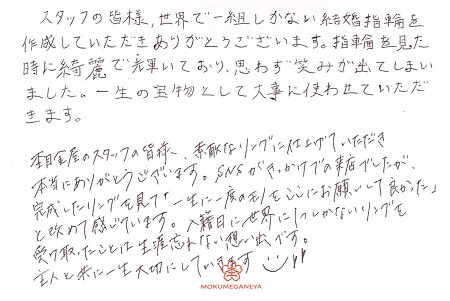 スタッフの皆様，世界で一組しかない結婚指輪を
作成していただきありがとうございます。指輪を見た
時に綺麗で輝いており、思わず笑みが出てしまい
ました。一生の宝物として大事に使わせていただ
きます。
杢目金屋のスタッフの皆様へ 素敵なリングに仕上げていただき
本当にありがとうございます。SNSがきっかけでの来店でしたが、
完成したリングを見て「一生に一度のモノをここにお願いして良かった」
と改めて感じています。入籍日に世界に1つしかないリングを
受け取ったことは生涯忘れない想い出です。
主人と共に一生大切にしていきます
MOKUMEGANEYA